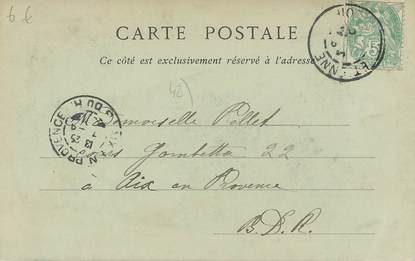 6 €
CARTE POSTALE
Ce côté est exclusivement réservé à l'adresse
(42)
Demoiselle Pellet
Gambetta 22
à Aix en Provence
B. D. R.
ETIENNE
AIX EN PROVENCE
5